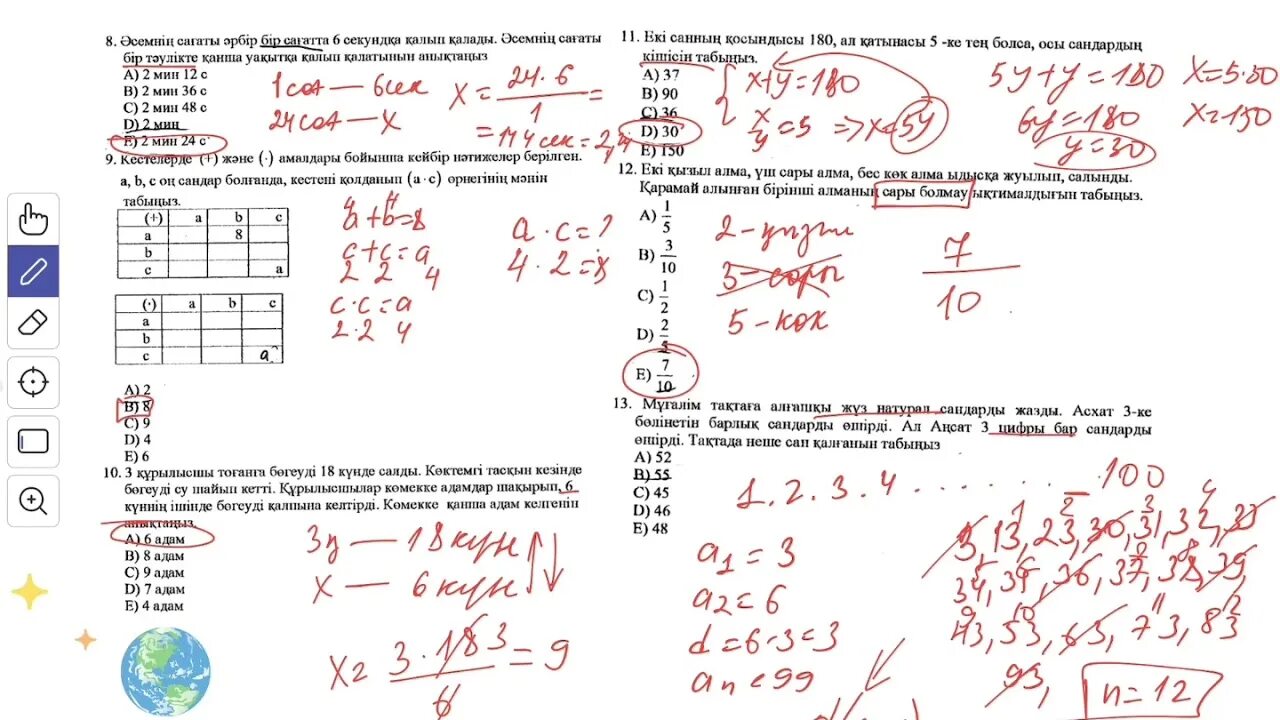 8. Әсемнің сағаты әрбір бір сағатта 6 секундқа қалып қалады. Әсемнің сағаты
бір тәулікте қанша уақытқа қалып қалатынын анықтаңыз
A) 2 мин 12 с
B) 2 мин 36 с
C) 2 мин 48 с
D) 2 мин
E) 2 мин 24 с
1 сағ — 6 сек
24 сағ — x
x = 24·6 / 1 =
= 144 сек = 2,4
9. Кестелерде (+) және (·) амалдары бойынша кейбір нәтижелер берілген.
a, b, c оң сандар болғанда, кестені қолданып (a·c) өрнегінің мәнін
табыңыз.
(+) a b c
a 8
b
c a
(·) a b c
a
b
c a
4 4
a+b=8
c+c=a
2 2 4
c·c=a
2·2 4
a·c=?
4·2=8
A) 2
B) 8
C) 9
D) 4
E) 6
10. 3 құрылысшы тоғанға бөгеуді 18 күнде салды. Көктемгі тасқын кезінде
бөгеуді су шайып кетті. Құрылысшылар көмекке адамдар шақырып, 6
күннің ішінде бөгеуді қалпына келтірді. Көмекке қанша адам келгенін
анықтаңыз.
A) 6 адам
B) 8 адам
C) 9 адам
D) 7 адам
E) 4 адам
18 күн
x — 6 күн
x = 3·18 3 / 6 = 9
11. Екі санның қосындысы 180, ал қатынасы 5 -ке тең болса, осы сандардың
кішісін табыңыз.
A) 37
B) 90
C) 36
D) 30
E) 150
x+y=180
x/y=5 => x=5y
5y+y=180
6y=180
y=30
x=5·30
x=150
12. Екі қызыл алма, үш сары алма, бес көк алма ыдысқа жуылып, салынды.
Қарамай алынған бірінші алманың сары болмау ықтималдығын табыңыз.
A) 1/5
B) 3/10
C) 1/2
D) 2/5
E) 7/10
2 - қызыл
3 - сары
5 - көк
7/10
13. Мұғалім тақтаға алғашқы жүз натурал сандарды жазды. Асхат 3-ке
бөлінетін барлық сандарды өшірді. Ал Аңсат 3 цифры бар сандарды
өшірді. Тақтада неше сан қалғанын табыңыз
A) 52
B) 55
C) 45
D) 46
E) 48
1. 2. 3. 4 . . . . . . . 100
a1 = 3
a2 = 6
d = 6-3 = 3
an = 99
1 2 3 4
3, 13, 23, 30, 31, 32, 33
34, 35, 36, 37, 38, 39,
43, 53, 63, 73, 83
93,
n = 12